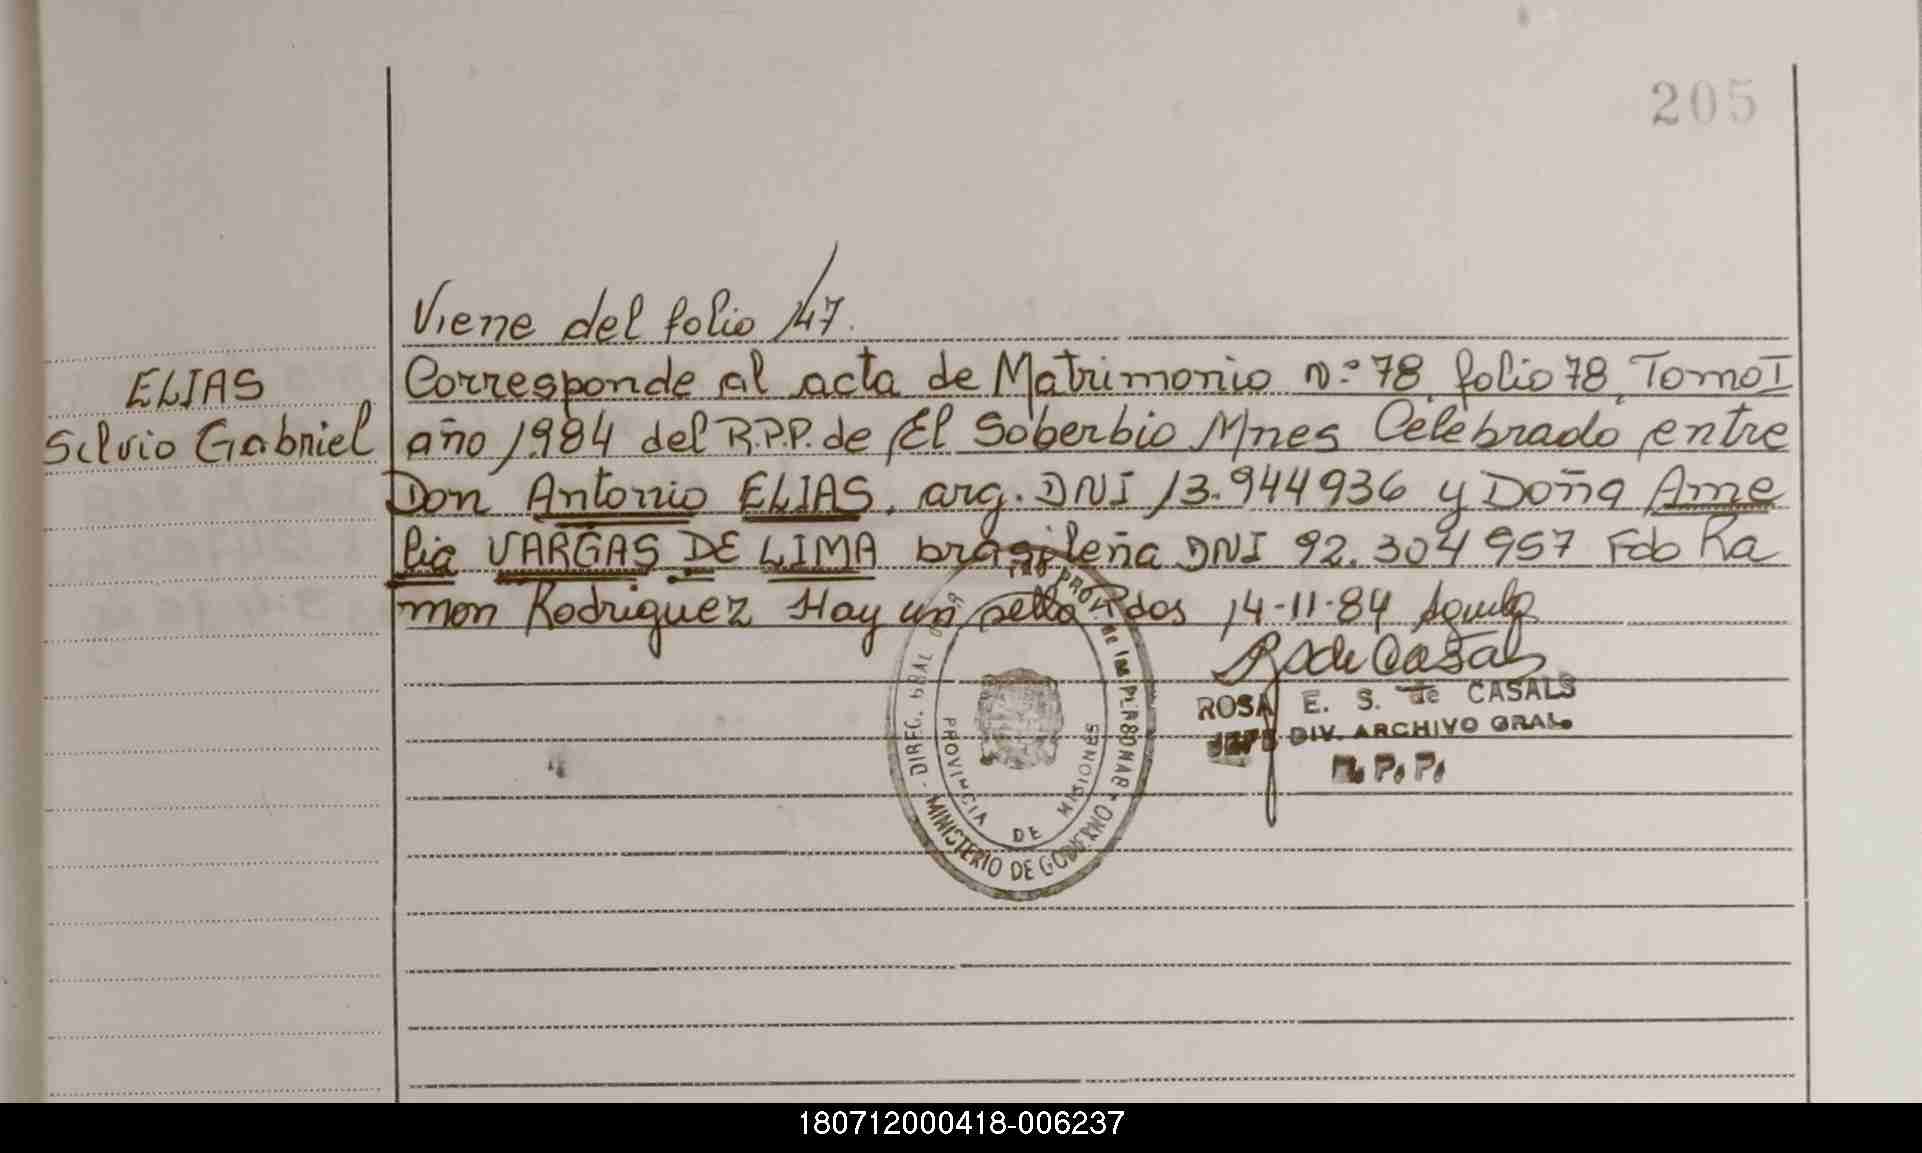 205
Viene del folio 147.
ELIAS
Silvio Gabriel
Corresponde al acta de Matrimonio Nº 78 folio 78 Tomo I
año 1.984 del R.P.P. de El Soberbio Mnes Celebrado entre
Don Antonio ELIAS, arg. DNI 13.944936 y Doña Ame
lia VARGAS DE LIMA brasileña DNI 92.304957 Fdo Ra
mon Rodriguez Hay un sello Pdos 14-11-84
R S de Casals
ROSA E. S. de CASALS
JEFE DIV. ARCHIVO GRAL.
R. P. P.
DIREC. GRAL PROV. de las PERSONAS
MINISTERIO DE GOBIERNO
PROVINCIA DE MISIONES
180712000418-006237